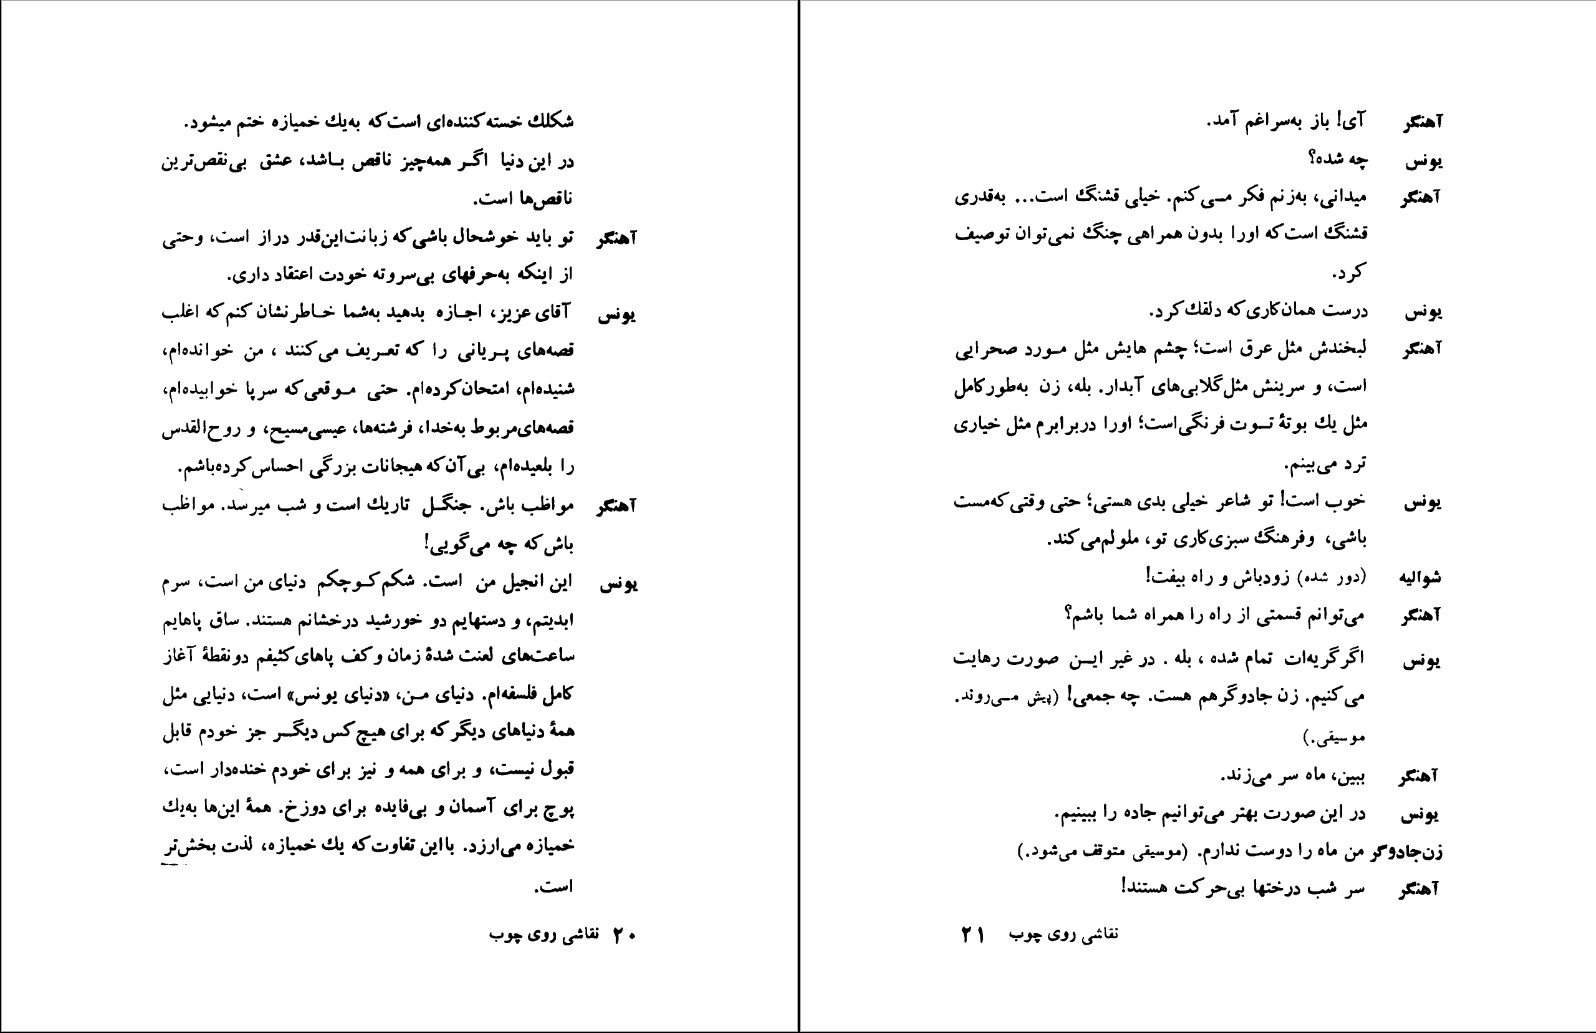 شکلك خسته‌کننده‌ای است‌که به‌یك خمیازه ختم میشود.
در این دنیا اگـر همه‌چیز ناقص بـاشد، عشق بی‌نقص‌ترین
ناقص‌ها است.
آهنگر تو باید خوشحال باشی‌که زبانت‌این‌قدر دراز است، وحتی
از اینکه به‌حرفهای بی‌سروته خودت اعتقاد داری.
یونس آقای عزیز، اجـازه بدهید به‌شما خـاطرنشان کنم‌که اغلب
قصه‌های پـریانی را که تعـریف می‌کنند ، من خوانده‌ام،
شنیده‌ام، امتحان‌کرده‌ام. حتی مـوقعی‌که سرپا خوابیده‌ام،
قصه‌های‌مربوط به‌خدا، فرشته‌ها، عیسی‌مسیح، و روح‌القدس
را بلعیده‌ام، بی‌آن‌که هیجانات بزرگی احساس‌کرده‌باشم.
آهنگر مواظب باش. جنگـل تاریك است و شب میرسد. مواظب
باش‌که چه می‌گویی!
یونس این انجیل من است. شکم‌کـوچکم دنیای من است، سرم
ابدیتم، و دستهایم دو خورشید درخشانم هستند. ساق پاهایم
ساعت‌های لعنت شدهٔ زمان و کف پاهای‌کثیفم دونقطهٔ آغاز
کامل فلسفه‌ام. دنیای مـن، «دنیای یونس» است، دنیایی مثل
همهٔ دنیاهای دیگر که برای هیچ‌کس دیگـر جز خودم قابل
قبول نیست، و برای همه و نیز برای خودم خنده‌دار است،
پوچ برای آسمان و بی‌فایده برای دوزخ. همهٔ این‌ها به‌یك
خمیازه می‌ارزد. بااین تفاوت‌که یك خمیازه، لذت بخش‌تر
است.
۲۰ نقاشی روی چوب
آهنگر آی! باز به‌سراغم آمد.
یونس چه شده؟
آهنگر میدانی، به‌زنم فکر مـی‌کنم. خیلی قشنگ است... به‌قدری
قشنگ است‌که اورا بدون همراهی چنگ نمی‌توان توصیف
کرد.
یونس درست همان‌کاری‌که دلقك‌کرد.
آهنگر لبخندش مثل عرق است؛ چشم هایش مثل مـورد صحرایی
است، و سرینش مثل‌گلابی‌های آبدار. بله، زن به‌طورکامل
مثل یك بوتهٔ تـوت فرنگی‌است؛ اورا دربرابرم مثل خیاری
ترد می‌بینم.
یونس خوب است! تو شاعر خیلی بدی هستی؛ حتی وقتی‌که‌مست
باشی، وفرهنگ سبزی‌کاری تو، ملولم‌می‌کند.
شوالیه (دور شده) زودباش و راه بیفت!
آهنگر می‌توانم قسمتی از راه را همراه شما باشم؟
یونس اگرگریه‌ات تمام شده ، بله . در غیر ایـن صورت رهایت
می‌کنیم. زن جادوگرهم هست. چه جمعی! (پیش مـی‌روند.
موسیقی.)
آهنگر ببین، ماه سر می‌زند.
یونس در این صورت بهتر می‌توانیم جاده را ببینیم.
زن‌جادوگر من ماه را دوست ندارم. (موسیقی متوقف می‌شود.)
آهنگر سر شب درختها بی‌حرکت هستند!
نقاشی روی چوب ۲۱